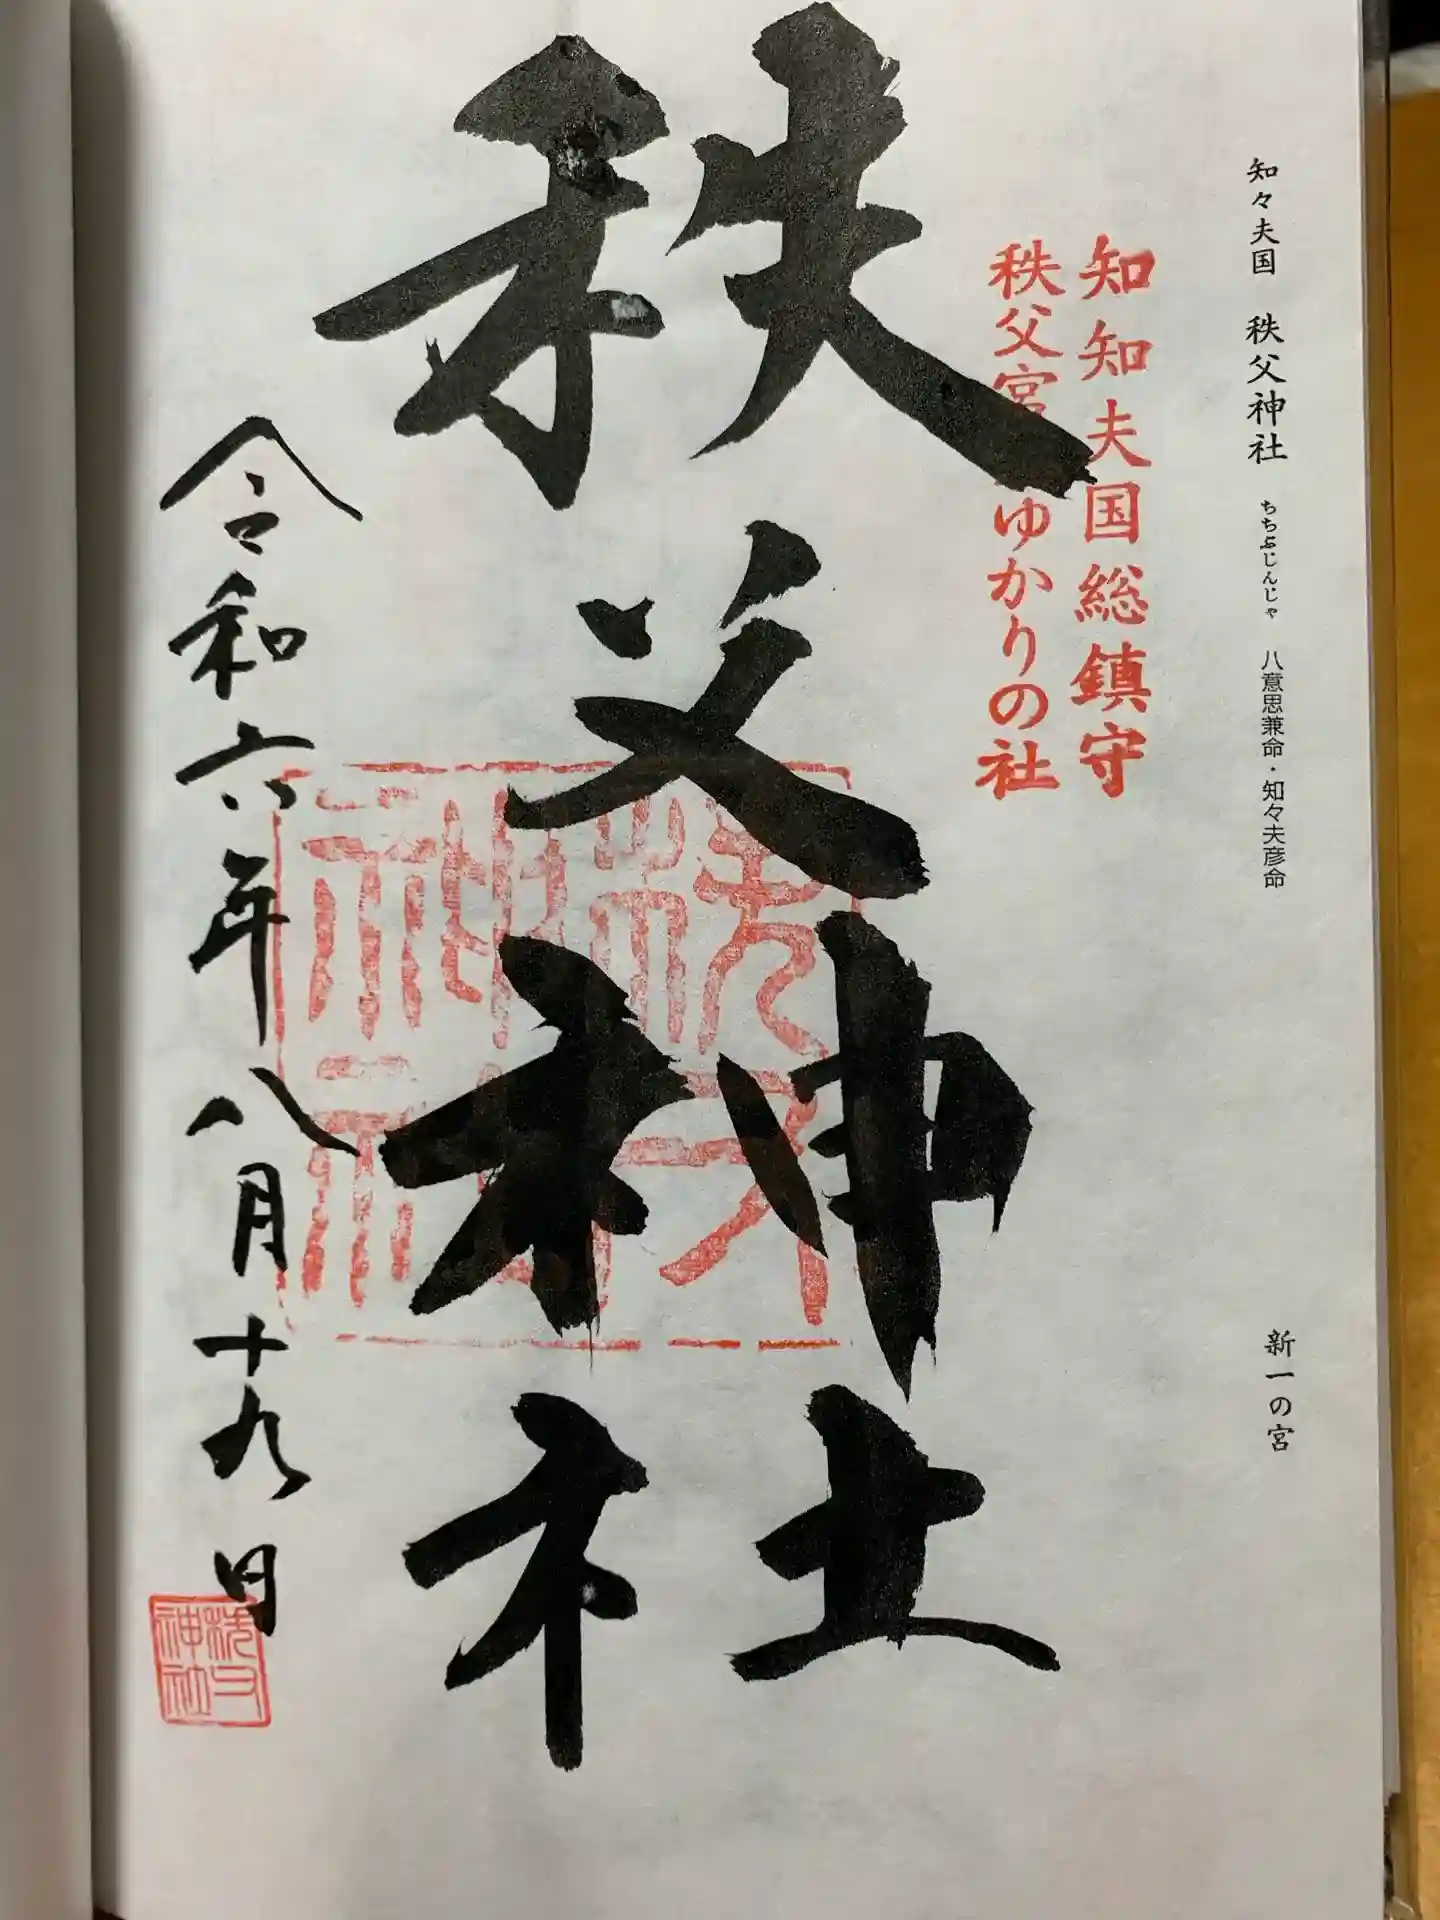 知々夫国 秩父神社 ちちぶじんじゃ 八意思兼命・知々夫彦命
新一の宮
知知夫国総鎮守
秩父宮ゆかりの社
秩父神社
令和六年八月十九日
秩父神社
秩父神社